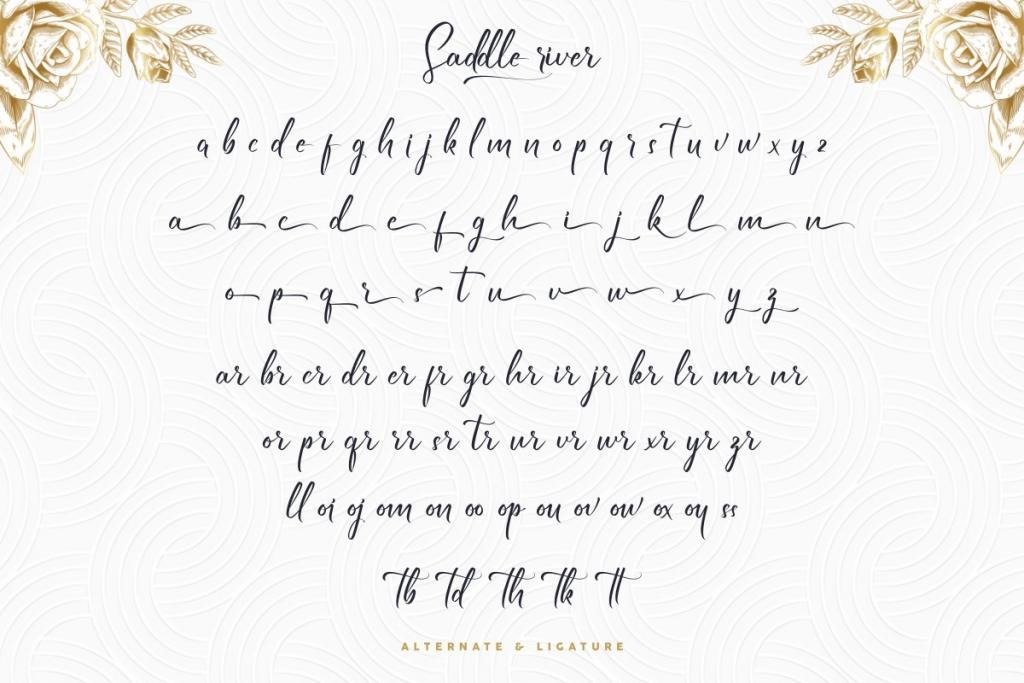 Saddle river
a b c d e f g h i j k l m n o p q r s t u v w x y z
a b c d e f g h i j k l m n
o p q r s t u v w x y z
ar br cr dr er fr gr hr ir jr kr lr mr nr
or pr qr rr sr tr ur vr wr xr yr zr
ll oi oj om on oo op ou ov ow ox oy ss
tb td th tk tt
ALTERNATE & LIGATURE